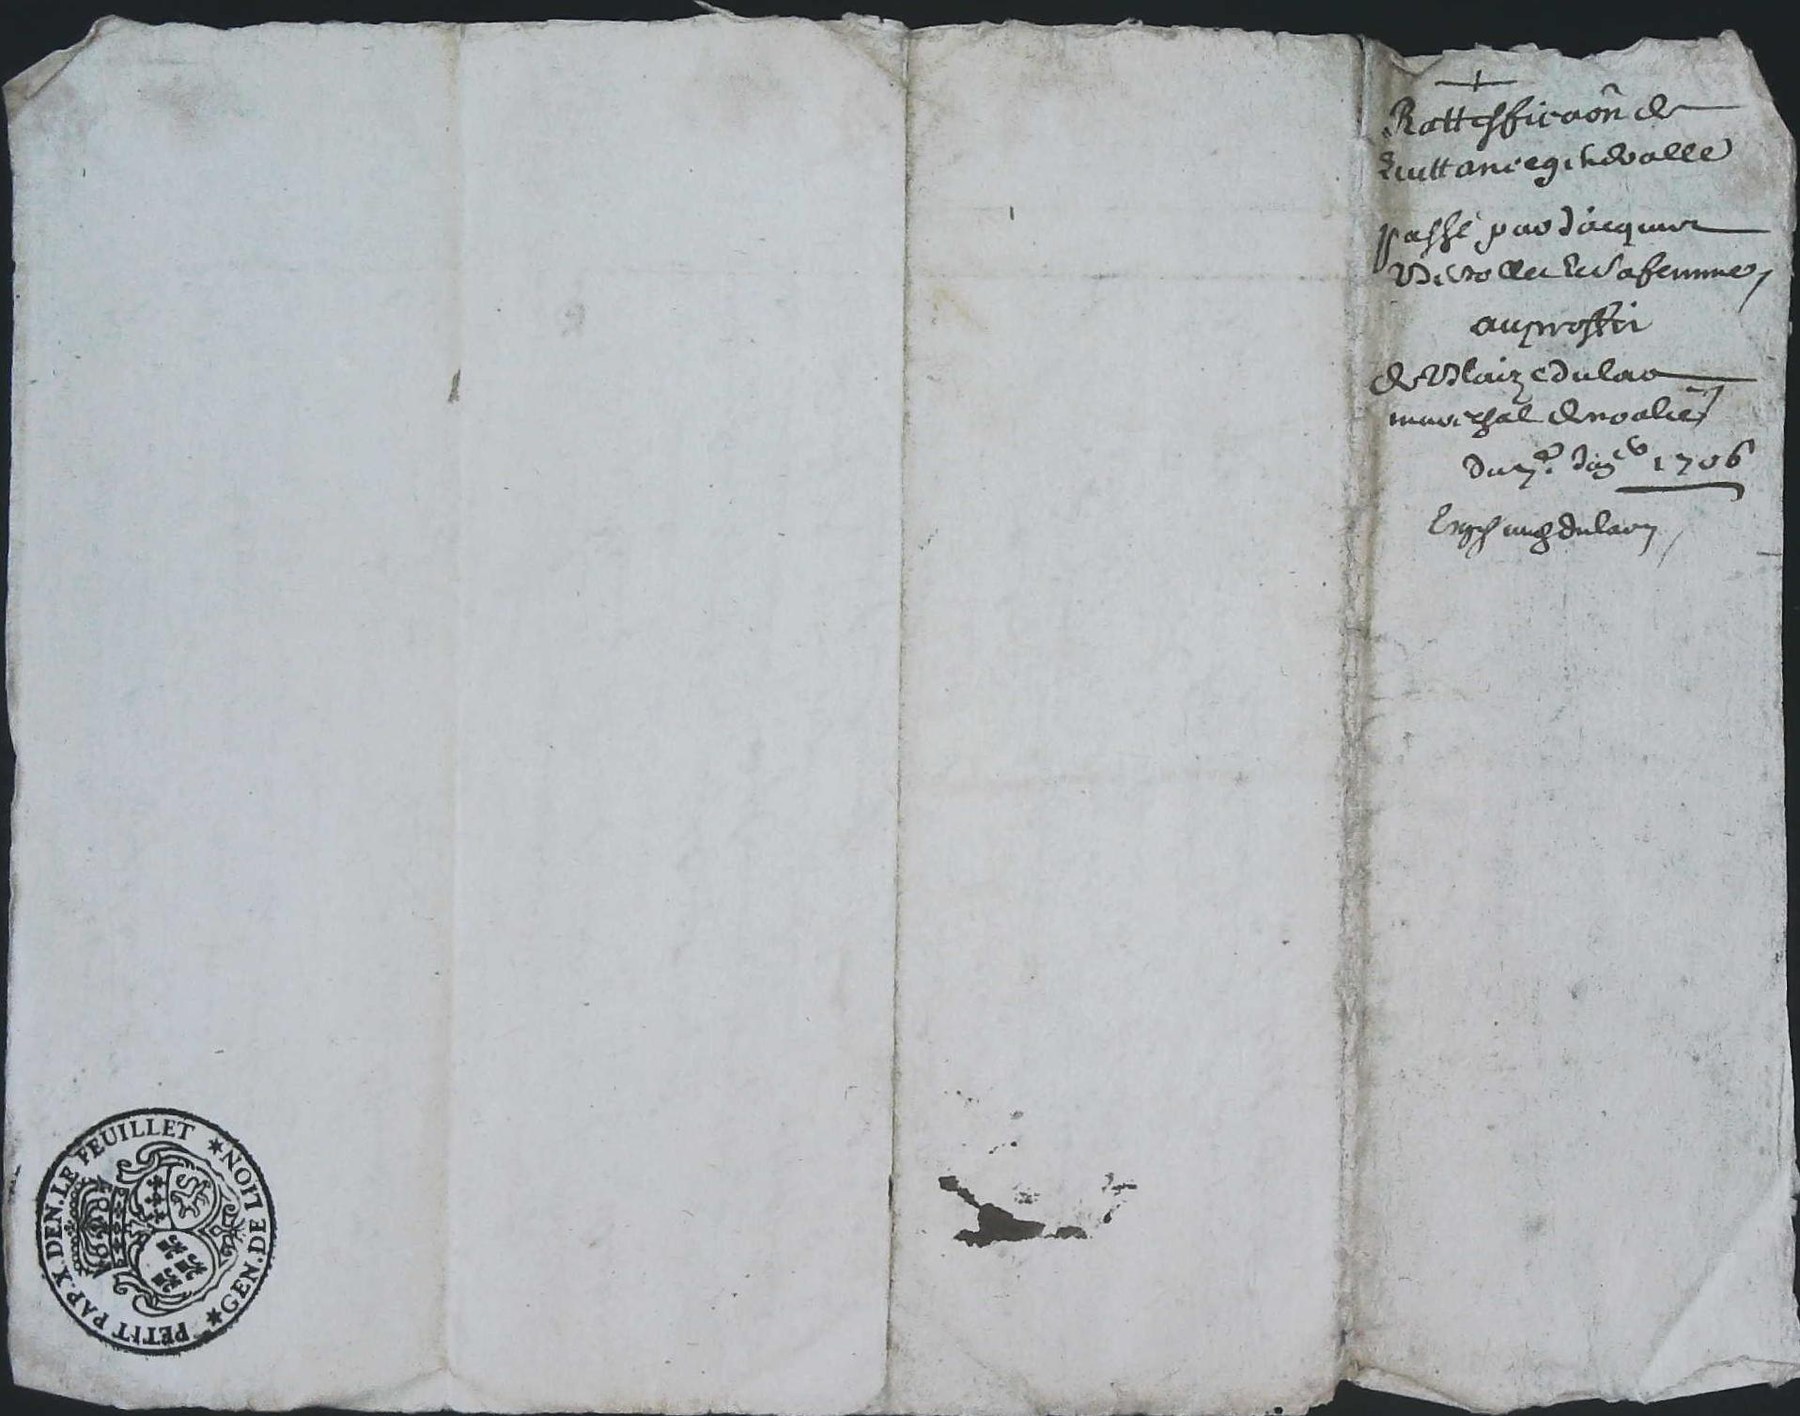 Rattiffica^on de
quittance generalle
passé par Jacques
et sa femme
au proffit
de Blaize dulac
marechal de noalie
du 7e 1706
dulac
PETIT PAP. X. DEN. LE FEUILLET * GEN. DE LION *